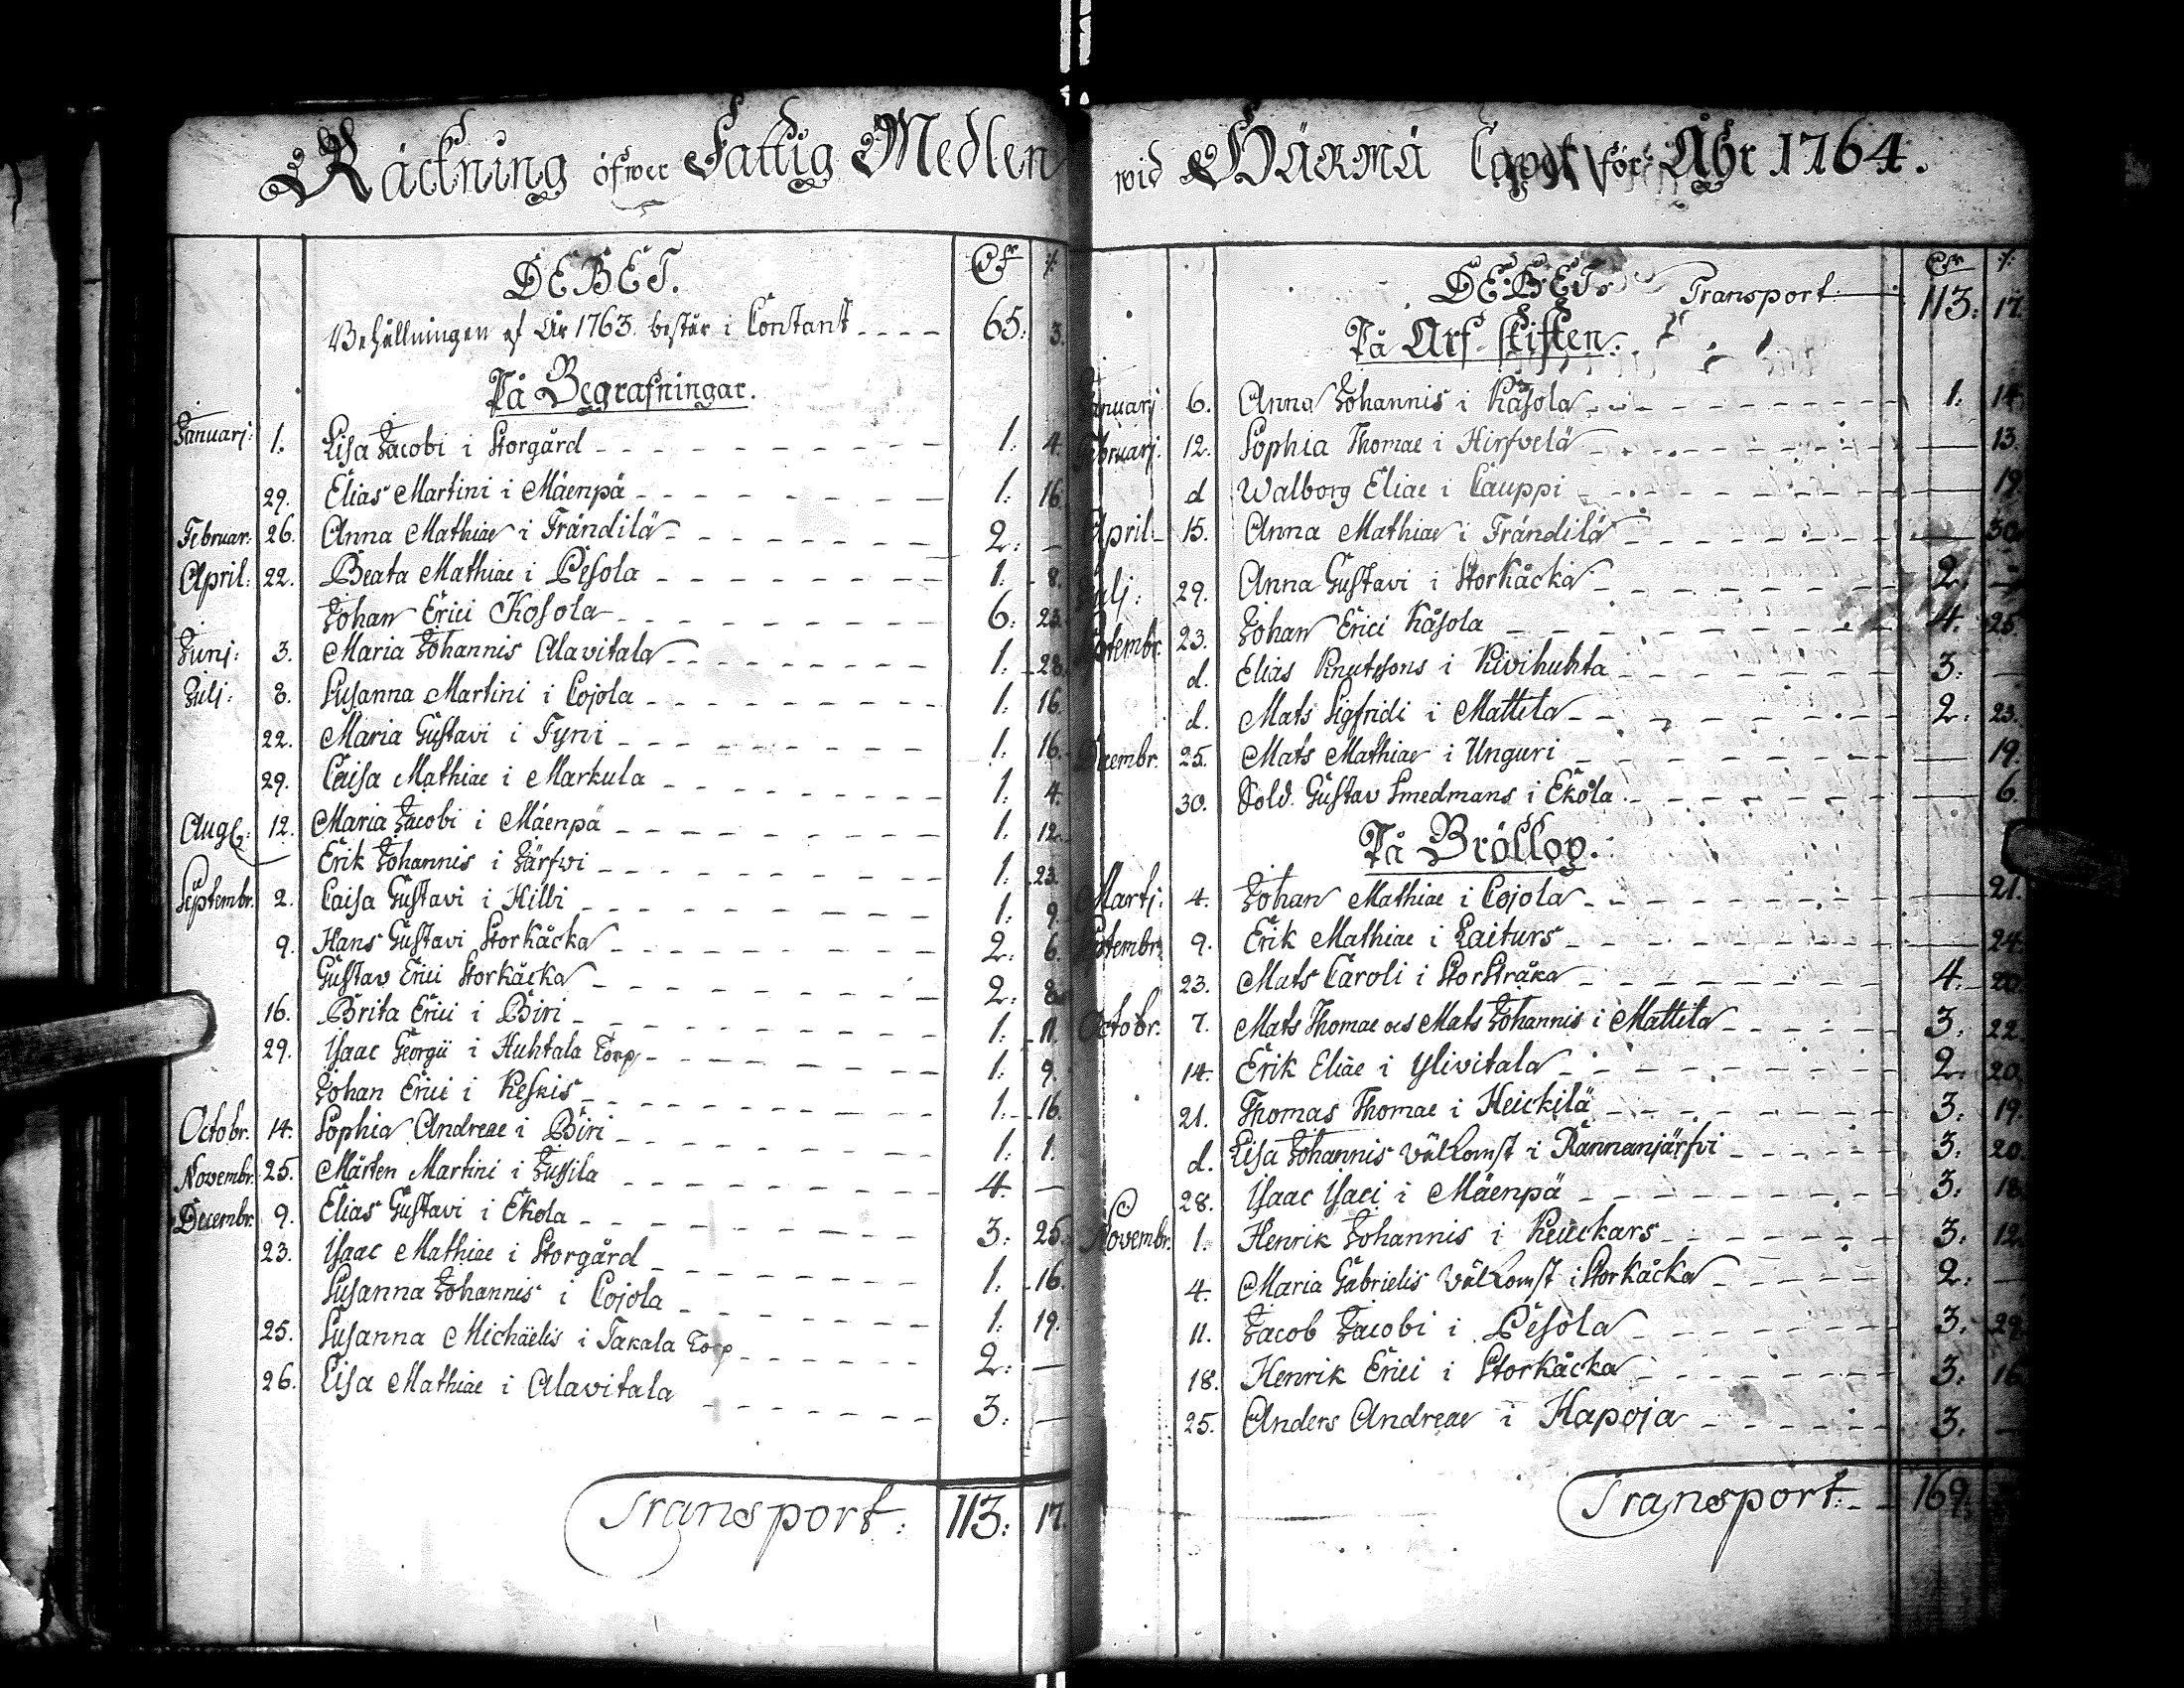 Räckning öfwer Fattig Medlen
DEBET.
Behållningen af År 1763. består i Contant 65: 3.
På Begrafningar.
Januarj: 1. Lisa Jacobi i Storgård 1. 4.
29. Elias Martini i Mäenpä 1: 16.
Februar: 26. Anna Mathiae i Frändilä 2: —
April: 22. Beata Mathiae i Pesola 1: 8.
Johan Erici Kosola 6: 23.
Junj: 3. Maria Johannis Alavitala 1: 28.
Julj: 8. Susanna Martini i Cojola 1: 16.
22. Maria Gustavi i Fyri 1: 16.
29. Caisa Mathiae i Markula 1: 4.
Aug: 12. Maria Jacobi i Mäenpä 1: 12.
Erik Johannis i Järfwi 1: 23.
Septembr. 2. Caisa Gustavi i Hilli 1: 9.
9. Hans Gustavi Storkåcka 2: 6.
Gustav Erici Storkåcka 2: 8.
16. Brita Erici i Biri 1: 11.
29. Isaac Georgii i Huhtala Torp 1: 9.
Johan Erici i Keskis 1: 16.
Octobr. 14. Sophia Andreae i Biri 1: 1.
Novembr. 25. Mårten Martini i Jussila 4. —
Decembr. 9. Elias Gustavi i Ekola 3: 25.
23. Isaac Mathiae i Storgård 1: 16.
Susanna Johannis i Cojola 1: 19.
25. Susanna Michäelis i Takala Torp 2: —
26. Lisa Mathiae i Alavitala 3: —
Transport: 113: 17.
wid Härmä Capel för Åhr 1764.
DEBET. Transport: 113: 17.
På Arf-skiften.
Januarj 6. Anna Johannis i Kåsola 1: 14.
Februarj. 12. Sophia Thomae i Hirfvelä — 13.
d Walborg Eliae i Cauppi — 19.
April 15. Anna Mathiae i Frändilä — 30.
Julj: 29. Anna Gustavi i Storkåcka 2. —
23. Johan Erici Kåsola 4. 25.
d. Elias Knutssons i Kivihuhta 3: —
d. Mats Sigfridi i Mattila 2: 23.
Decembr. 25. Mats Mathiae i Unguri — 19.
30. Sold. Gustav Smedmans i Ekola — 6.
På Bröllop.
Martj: 4. Johan Mathiae i Cojola — 21.
Septembr. 9. Erik Mathiae i Laiturs — 24.
23. Mats Caroli i Storstråka 4. 20.
Octobr. 7. Mats Thomae och Mats Johannis i Mattila 3. 22.
14. Erik Eliae i Ylivitala 2. 20.
21. Thomas Thomae i Heickilä 3. 19.
d. Lisa Johannis välkomst i Rannanjärfvi 3. 20.
28. Isaac Isaci i Mäenpä 3. 18.
Novembr. 1. Henrik Johannis i Keuckars 3. 12.
4. Maria Gabrielis välkomst i Storkåcka 2. —
11. Jacob Jacobi i Pesola 3. 29.
18. Henrik Erici i Storkåcka 3. 16.
25. Anders Andreae i Hapoja 3. —
Transport: 169.